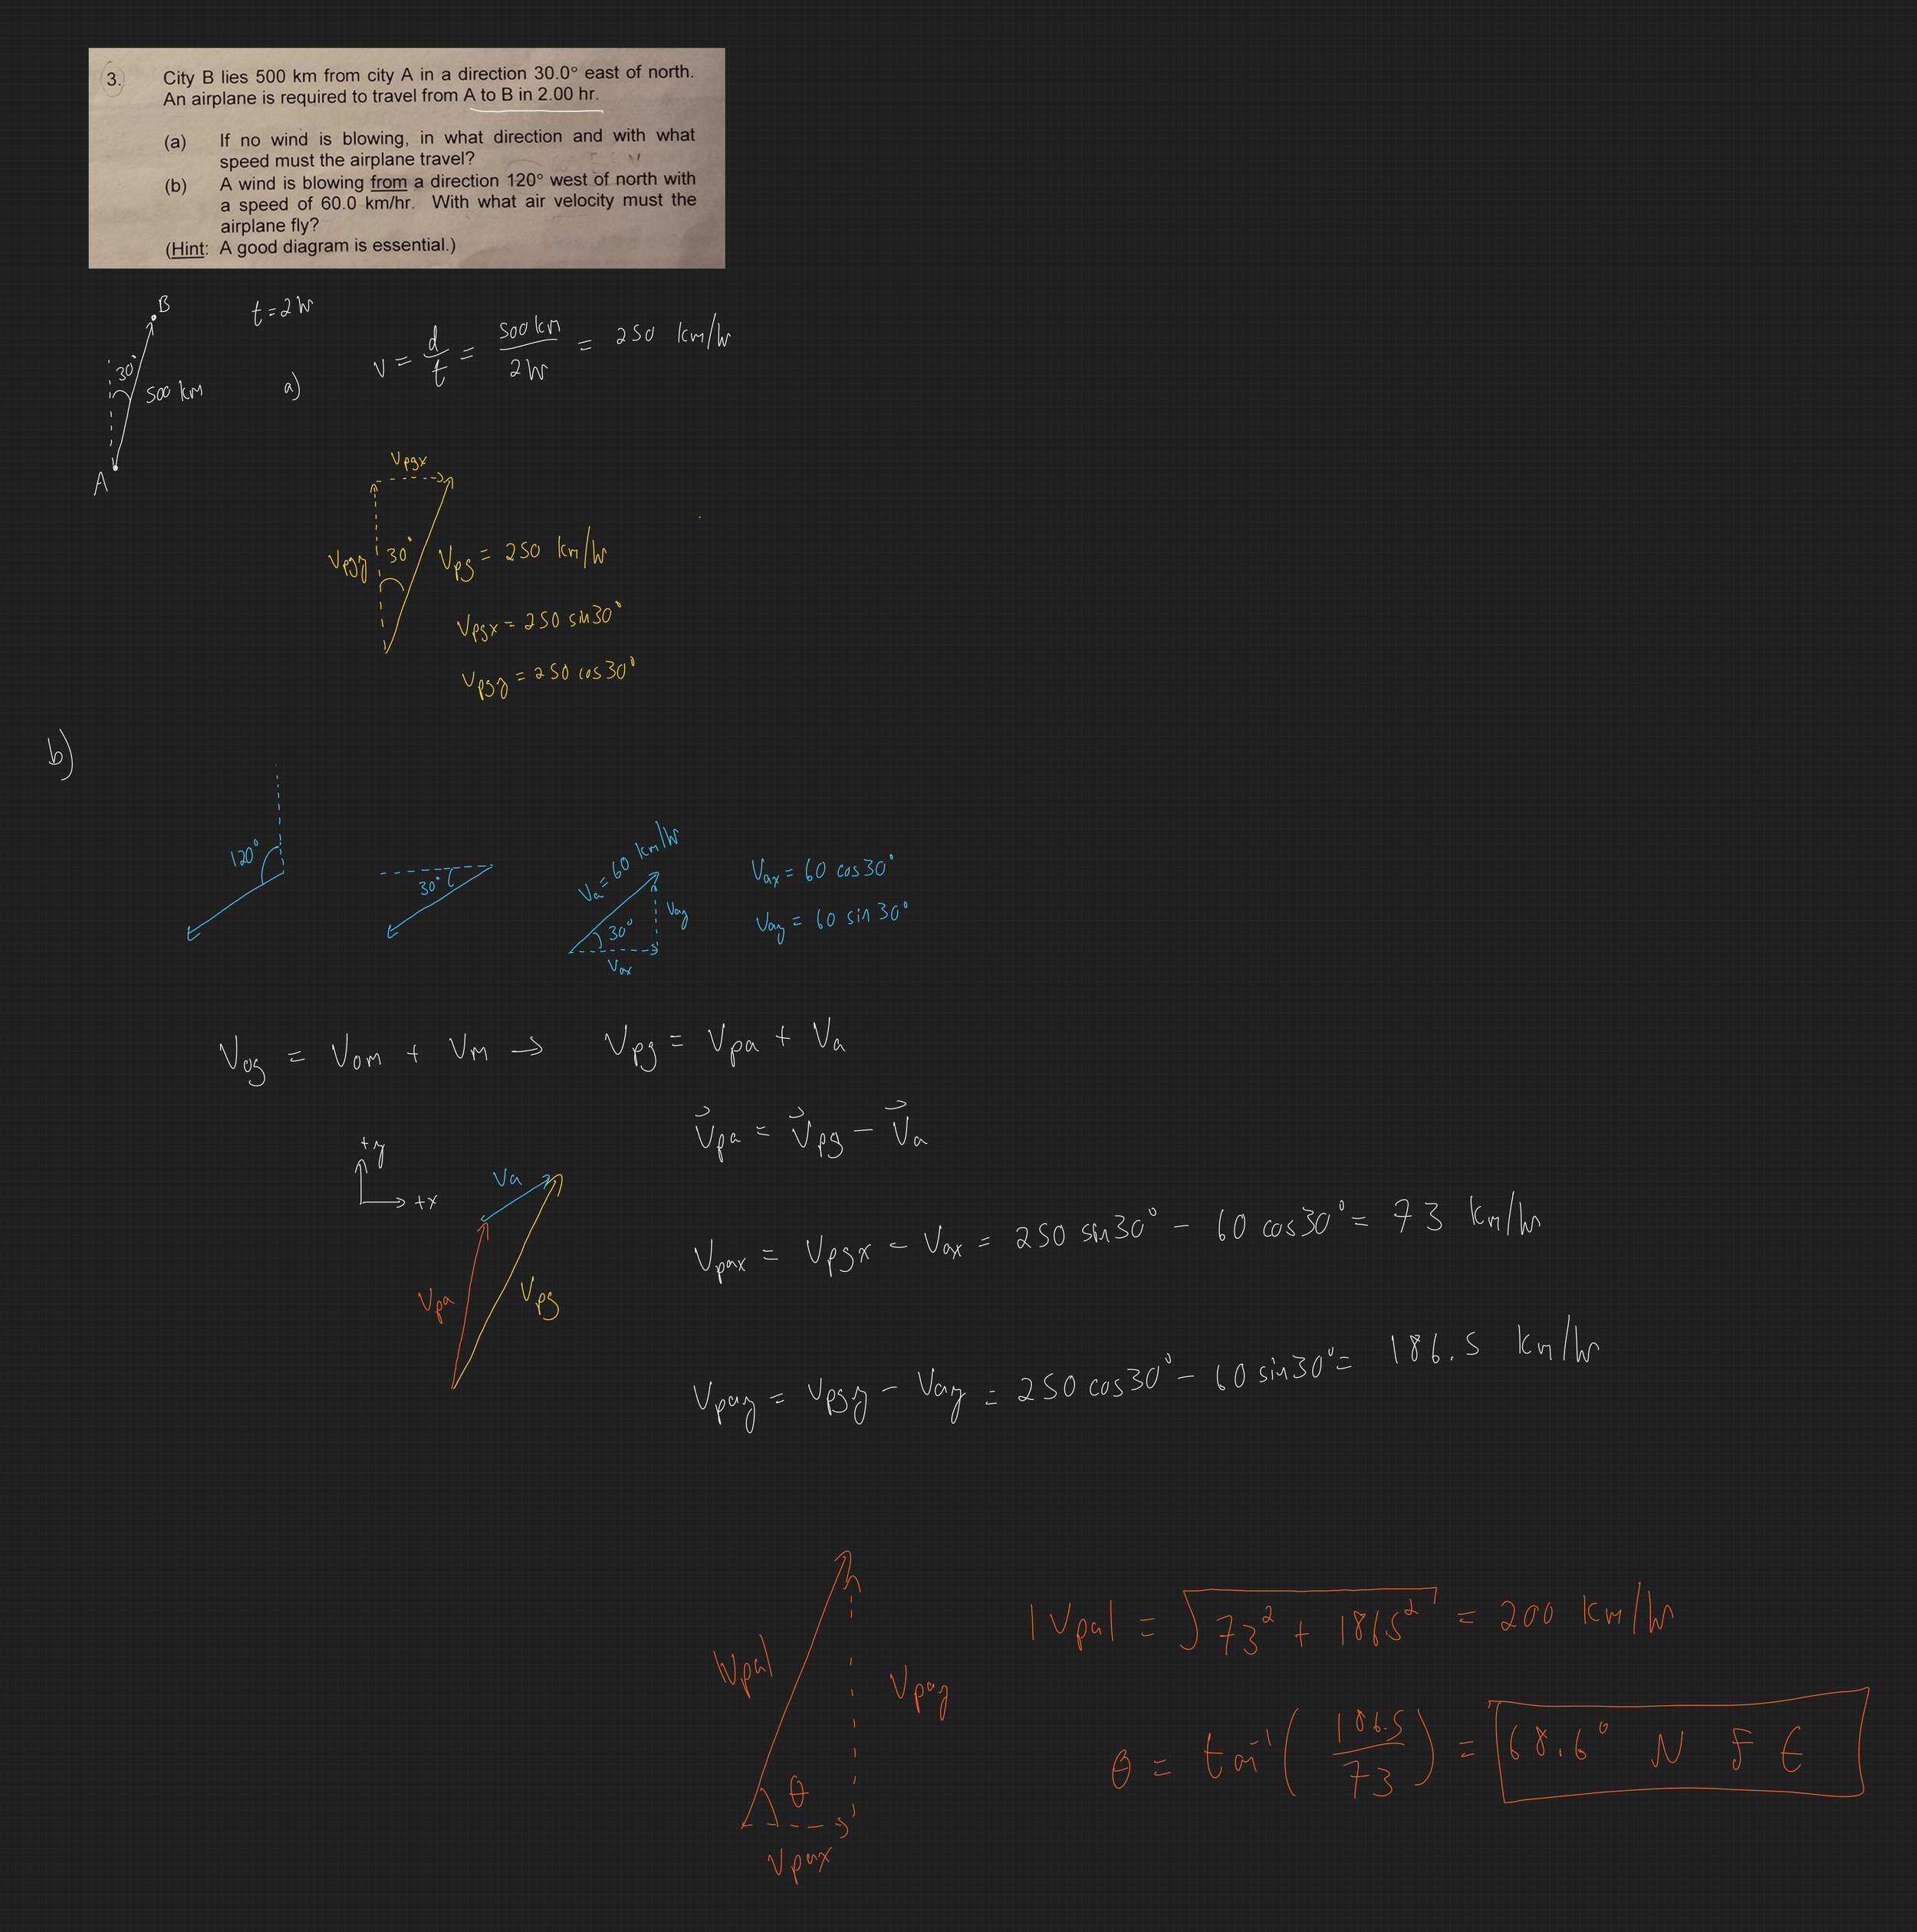 3. City B lies 500 km from city A in a direction 30.0° east of north.
An airplane is required to travel from A to B in 2.00 hr.
(a) If no wind is blowing, in what direction and with what
speed must the airplane travel?
(b) A wind is blowing from a direction 120° west of north with
a speed of 60.0 km/hr. With what air velocity must the
airplane fly?
(Hint: A good diagram is essential.)
B
t = 2 hr
30°
500 km
A
a) v = d/t = 500 km / 2 hr = 250 km/hr
Vpgx
Vpgy 30° Vpg = 250 km/hr
Vpgx = 250 sin30°
Vpgy = 250 cos30°
b)
120°
30°
Va = 60 km/hr
30°
Vay
Vax
Vax = 60 cos30°
Vay = 60 sin 30°
Vog = Vom + Vm → Vpg = Vpa + Va
V⃗pa = V⃗pg − V⃗a
+y
+x
Va
Vpa
Vpg
Vpax = Vpgx − Vax = 250 sin30° − 60 cos30° = 73 km/hr
Vpay = Vpgy − Vay = 250 cos30° − 60 sin30° = 186.5 km/hr
|Vpa|
Vpay
θ
Vpax
|Vpa| = √73² + 186.5² = 200 km/hr
θ = tan⁻¹(186.5/73) = 68.6° N F E